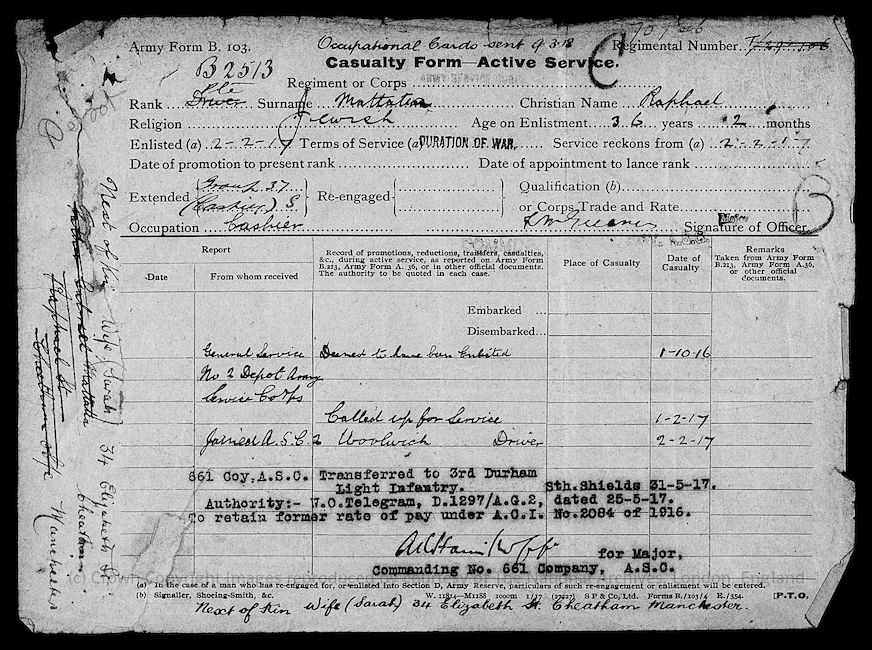 Occupational Cards sent 9.3.18
Army Form B. 103. Regimental Number
Casualty Form—Active Service.
B 2513
Regiment or Corps
Pte
Rank Driver Surname Christian Name Raphael
Religion Jewish Age on Enlistment 36 years 2 months
Enlisted (a) 2-2-17 Terms of Service (a) DURATION OF WAR. Service reckons from (a) 2-2-17
Date of promotion to present rank Date of appointment to lance rank
Extended Group 37 Re-engaged Qualification (b)
(Cashier) S or Corps Trade and Rate
Occupation Cashier Signature of Officer
Report Record of promotions, reductions, transfers, casualties, &c., during active service, as reported on Army Form B.213, Army Form A. 36, or in other official documents. The authority to be quoted in each case. Place of Casualty Date of Casualty Remarks Taken from Army Form B.213, Army Form A.36, or other official documents.
Date From whom received
Embarked ...
Disembarked ...
General Service Deemed to have been Enlisted 1-10-16
No 2 Depot Army
Service Corps
Called up for Service 1-2-17
Joined A.S.C. Woolwich Driver 2-2-17
661 Coy, A.S.C. Transferred to 3rd Durham
Light Infantry. Sth.Shields 31-5-17.
Authority:- W.O.Telegram, D.1297/A.G.2, dated 25-5-17.
To retain former rate of pay under A.C.I. No.2084 of 1916.
for Major,
Commanding No. 661 Company, A.S.C.
(a) In the case of a man who has re-engaged for, or enlisted into Section D, Army Reserve, particulars of such re-engagement or enlistment will be entered.
(b) Signaller, Shoeing-Smith, &c. W. 11874—M1188 1000m 1/17 S P & Co., Ltd. Forms B./103/4 E./354. [P.T.O.
Next of Kin Wife (Sarah) 34 Elizabeth St. Cheatham Manchester.
Next of Kin Wife (Sarah) 34 Elizabeth St. Cheatham Manchester
Raphael St